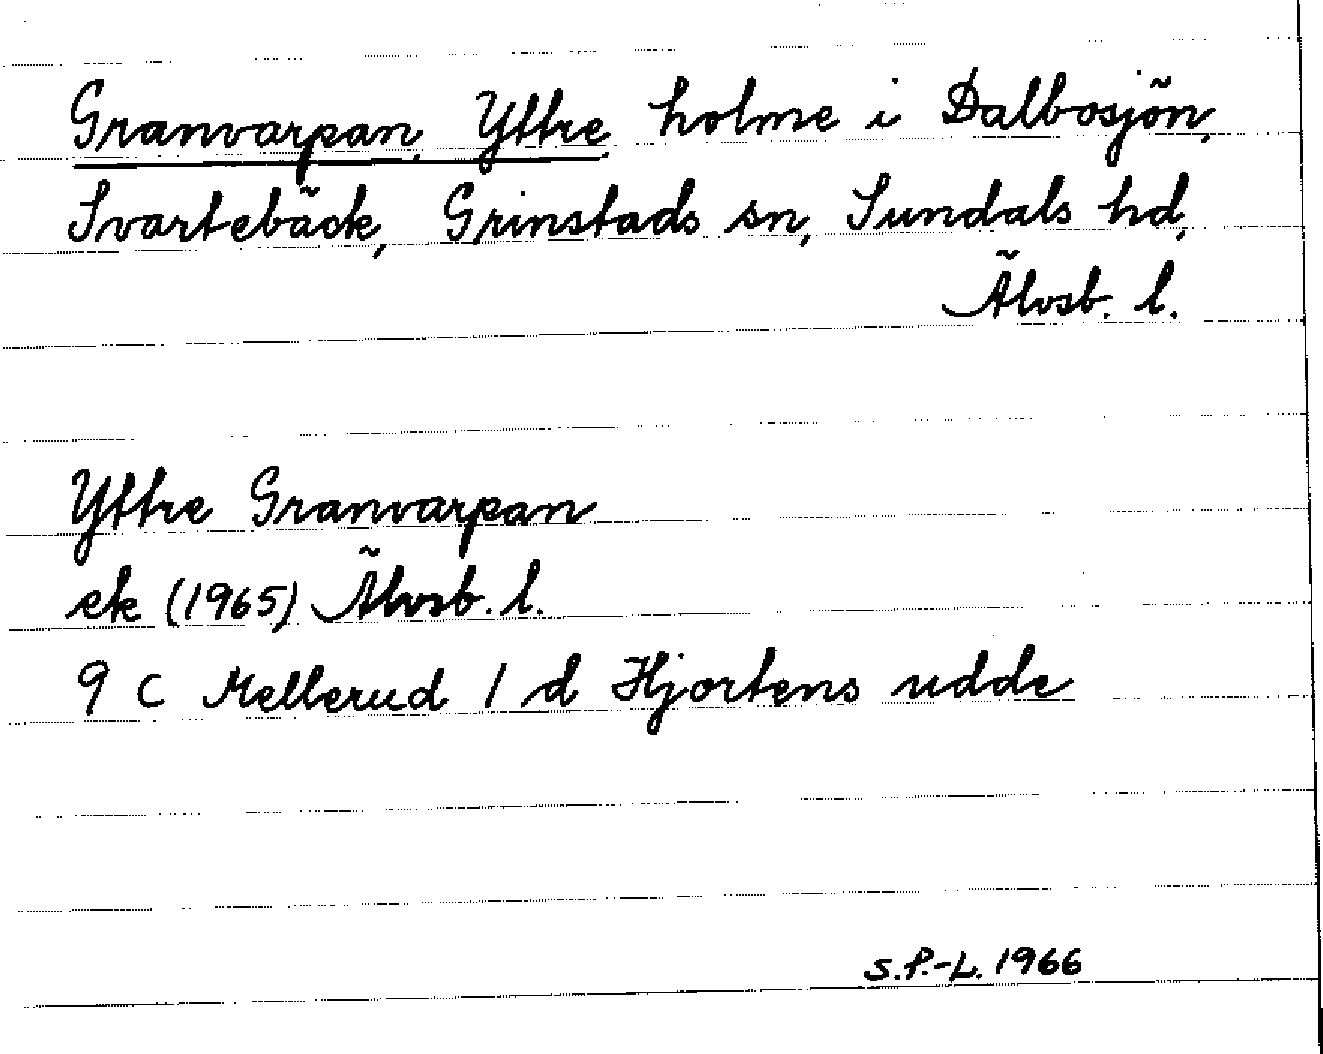 Granvarpan, Yttre, holme i Dalbosjön,
Svartebäck, Grinstads sn, Sundals hd,
Älvsb. l.
Yttre Granvarpan
ek (1965) Älvsb. l.
9 C Mellerud 1 d Hjortens udde
S.P.-L. 1966